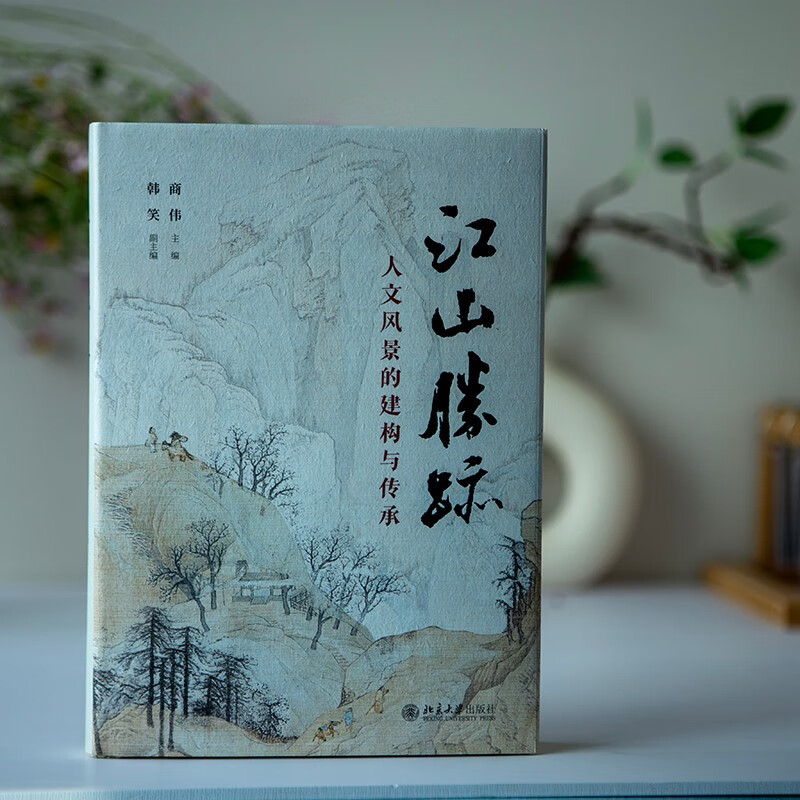 江山勝跡
人文风景的建构与传承
商伟 主编
韩笑 副主编
北京大学出版社
PEKING UNIVERSITY PRESS